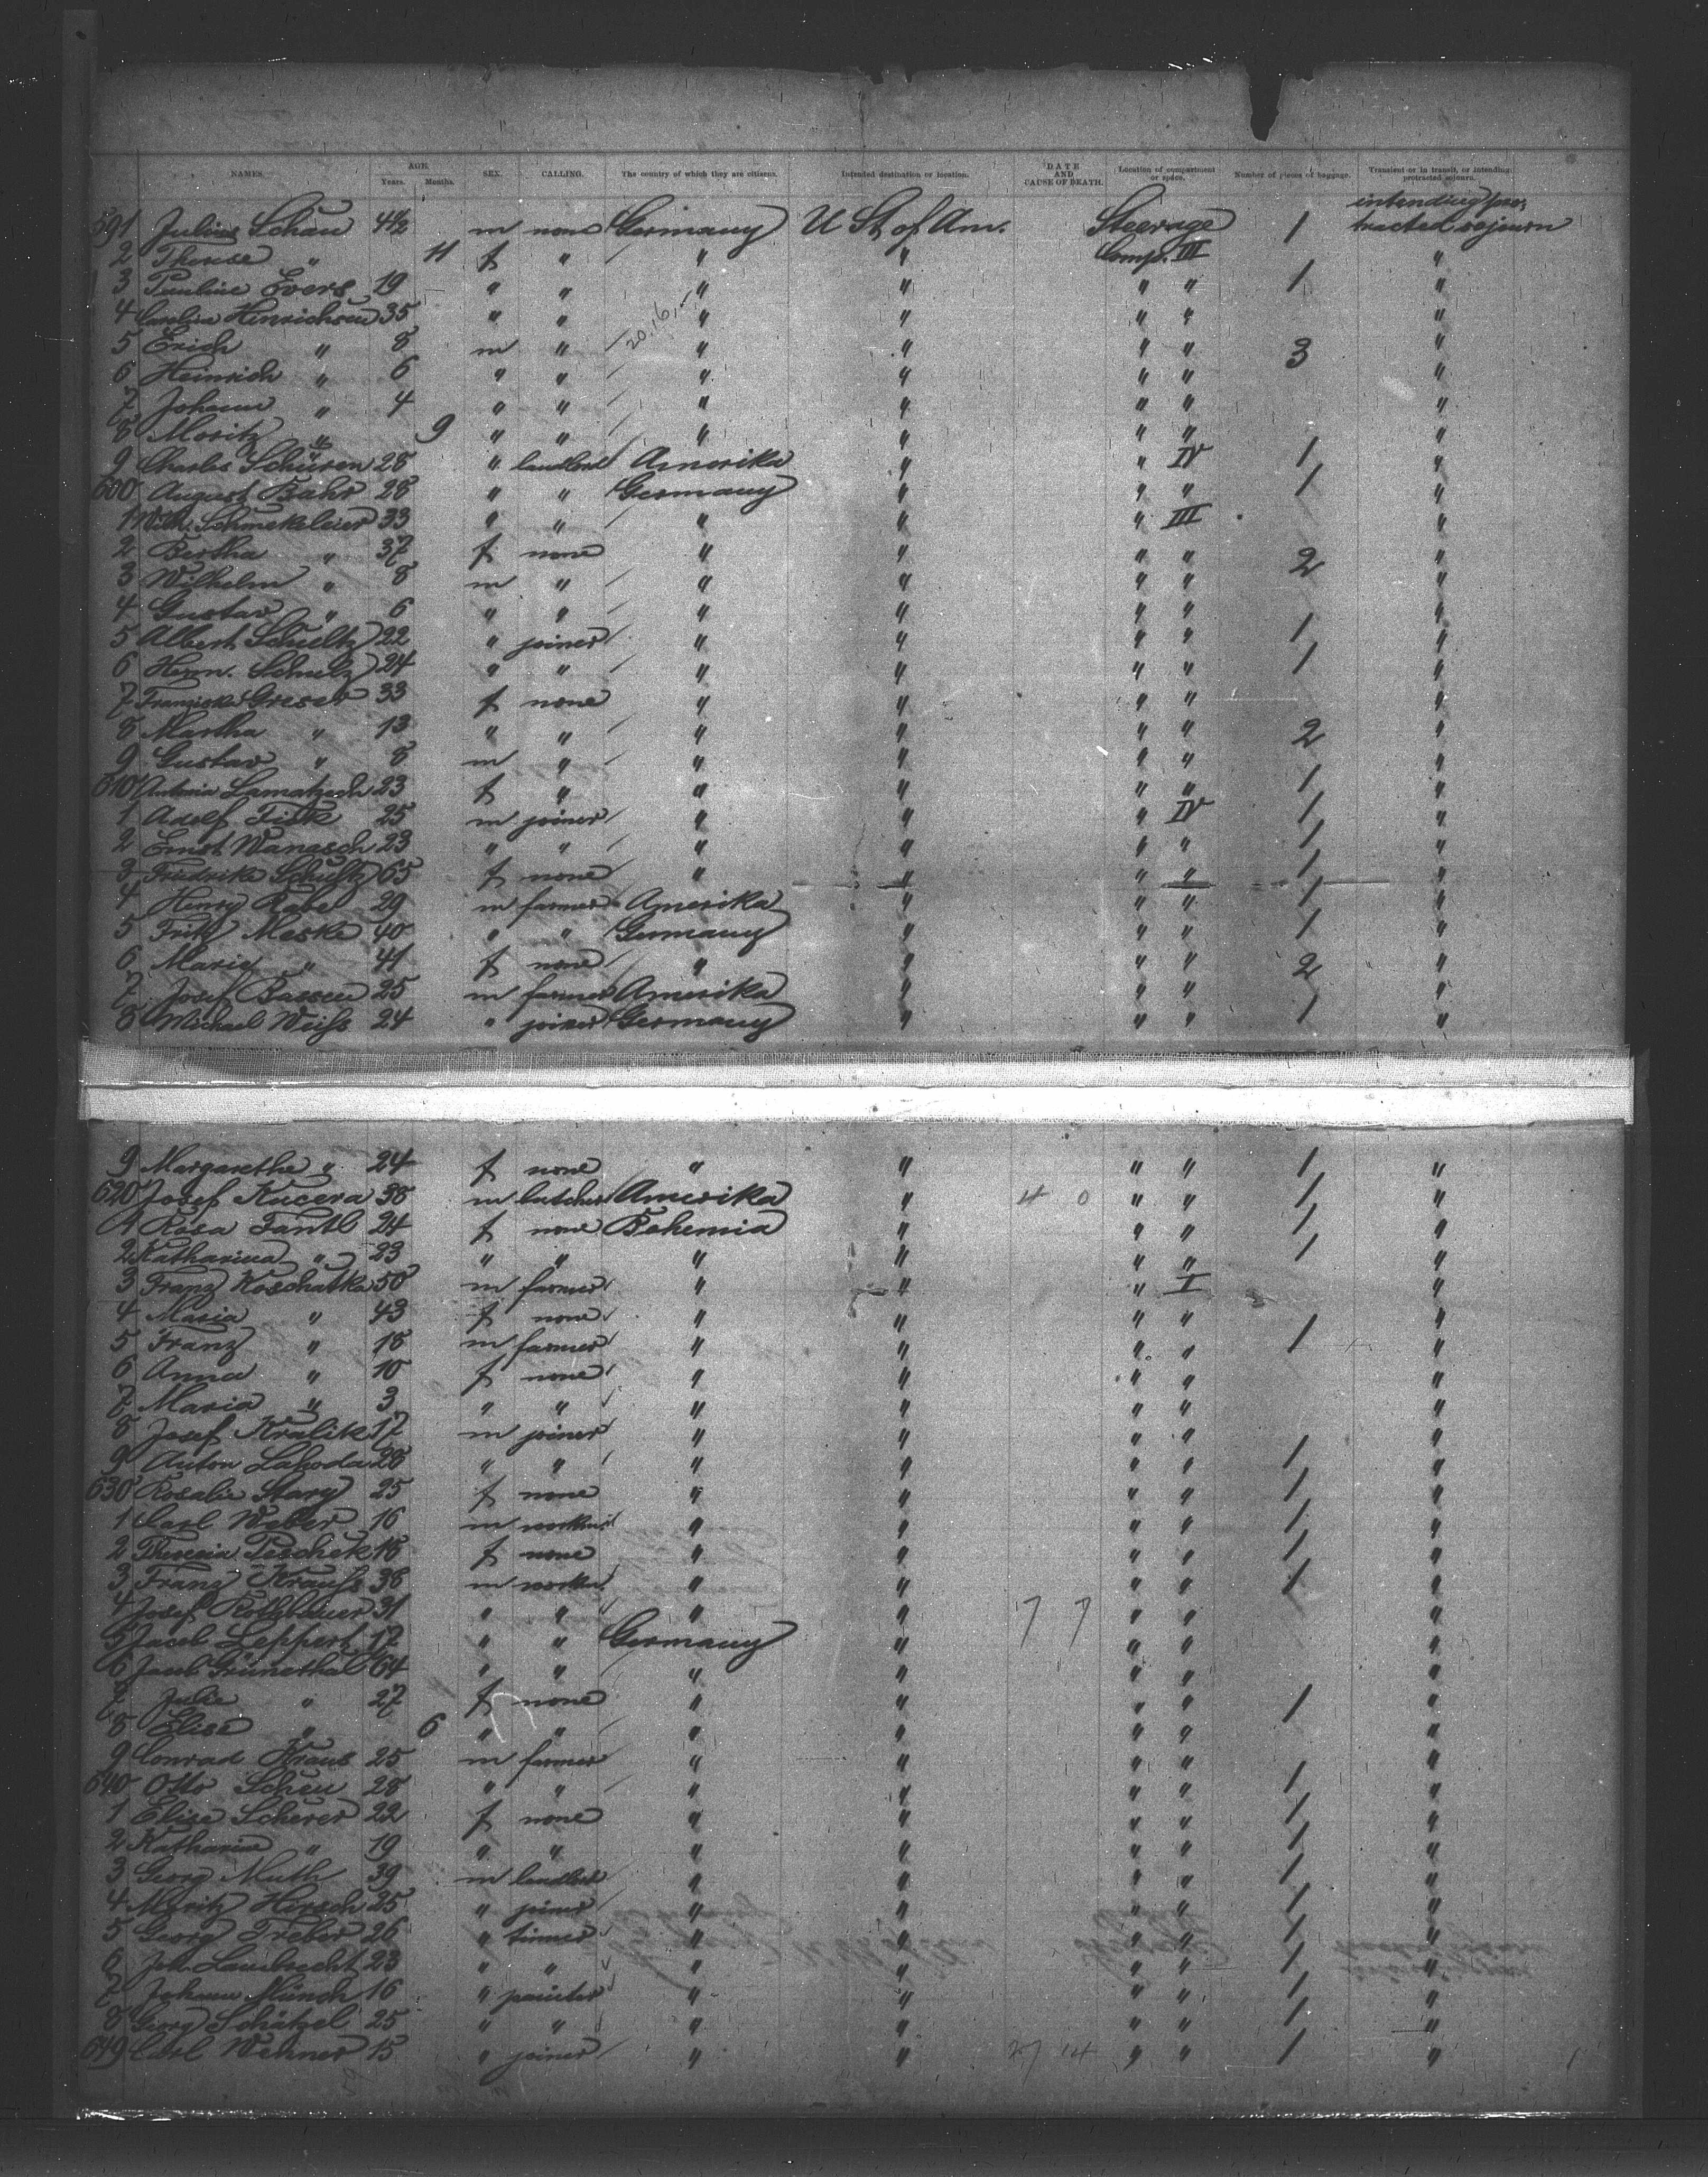 NAMES. AGE. Years. Months. SEX. CALLING. The country of which they are citizens. Intended destination or location. DATE AND CAUSE OF DEATH. Location of compartment or space. Number of pieces of baggage. Transient or in transit, or intending protracted sojourn.
591 Julius Schau 4½ m none Germany U St of Am. Steerage 1 intending pro,tracted sojourn
2 Therese " 11 f " " " Comp. III "
3 Pauline Evers 19 " " " " " " 1 "
4 Carolina Hinrichsen 35 " " " " " " "
5 Erich " 8 m " 20,16, " " " " 3 "
6 Heinrich " 6 " " " " " " "
7 Johann " 4 " " " " " " "
8 Moritz " 9 " " " " " " "
9 Charles Schüren 28 " landlord Amerika " " IV 1 "
600 August Bahr 28 " " Germany " " " 1 "
1 Wilh. Schmekeleier 33 " " " " " III "
2 Bertha " 37 f none " " " " 2 "
3 Wilhelm " 8 m " " " " " "
4 Gustav " 6 " " " " " " "
5 Albert Schultz 22 " joiner " " " " 1 "
6 Herm. Schulz 24 " " " " " " 1 "
7 Franziska 33 f none " " " " "
8 Martha " 13 " " " " " " 2 "
9 Gustav " 8 m " " " " " "
610 Antonia 23 f " " " " " 1 "
1 Adolf Fick 25 m joiner " " " IV 1 "
2 Ernst Wanasch 23 " " " " " " 1 "
3 Friedrike Schultz 65 f none " " " " 1 "
4 Henry Rabe 29 m farmer Amerika " " " 1 "
5 Fritz Maske 40 " " Germany " " " 1 "
6 Marie " 41 f none " " " " 2 "
7 Josef Bassen 25 m farmer Amerika " " " "
8 Michael Weifs 24 " joiner Germany " " " 1 "
9 Margarethe " 24 f none " " " " 1 "
620 Josef Kucera 38 m butcher Amerika " 4 0 " " 1 "
1 Rosa Fantl 24 f none Bohemia " " " 1 "
2 Katharina " 23 " " " " " " 1 "
3 Franz Koschatka 50 m farmer " " " I "
4 Maria " 43 f none " " " " "
5 Franz " 18 m farmer " " " " 1 "
6 Anna " 10 f none " " " " "
7 Maria " 3 " " " " " " "
8 Josef Kralik 17 m joiner " " " " "
9 Anton Lahoda 28 " " " " " " 1 "
630 Rosalie Stary 25 f none " " " " 1 "
1 Carl Weber 16 m " " " " 1 "
2 Theresia Peschek 18 f none " " " " 1 "
3 Franz Kraufs 38 m " " " " 1 "
4 Josef Rothbauer 31 " " " " 7 7 " " "
5 Jacob Leppert 17 " " Germany " " " "
6 Jacob Grünethal 64 " " " " " " "
7 Julie " 27 f none " " " " 1 "
8 Elise " 6 " " " " " " "
9 Conrad Kraus 25 m farmer " " " " "
640 Otto Scheu 28 " " " " " " 1 "
1 Elise Scherer 22 f none " " " " 1 "
2 Katharine " 19 " " " " " " 1 "
3 Georg Muth 39 m landlord " " " " 1 "
4 Moritz Hirsch 25 " joiner " " " " 1 "
5 Georg Treber 26 " tinner " " " " 1 "
6 Joh. Lambrecht 23 " " " " " " 1 "
7 Johann Münch 16 " painter " " " " 1 "
8 Georg Schätzel 25 " " " " " " 1 "
649 Carl Wehner 15 " joiner " " 27 14 " " 1 "